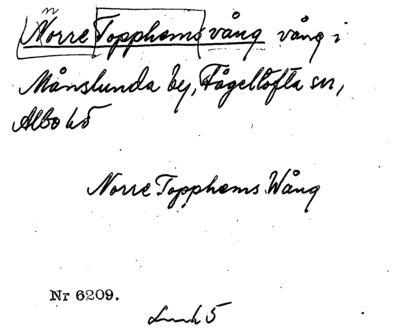 n
Norre Topphems vång vång i
Månslunda by, Fågeltofta sn,
Albo hd
Norre Topphems Wång
Nr 6209.
5